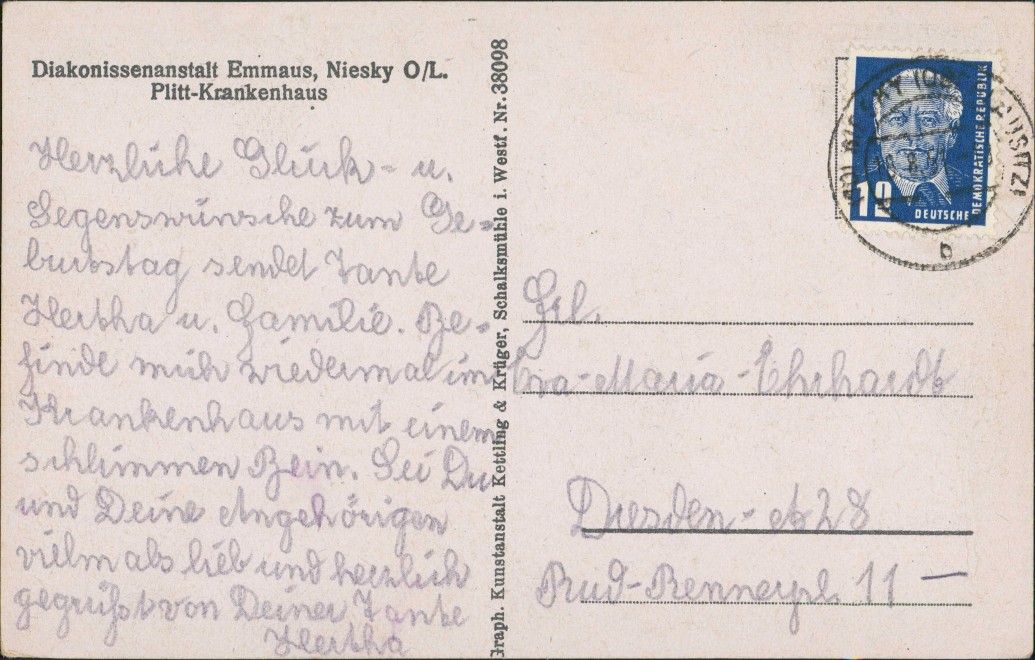 Diakonissenanstalt Emmaus, Niesky O/L.
Plitt-Krankenhaus
Herzliche Glück- u.
Segenswünsche zum Ge-
burtstag sendet Tante
Hertha u. Familie. Be-
finde mich wiedermal im
Krankenhaus mit einem
schlimmen Bein. Sei Du
und Deine Angehörigen
vielmals lieb und herzlich
gegrüßt von Deiner Tante
Hertha
Graph. Kunstanstalt Kettling & Krüger, Schalksmühle i. Westf. Nr. 38098
12
DEUTSCHE
DEMOKRATISCHE REPUBLIK
b
Frl.
Eva-Maria-Ehrhardt
Dresden-A 28
Rud-Rennerpl. 11